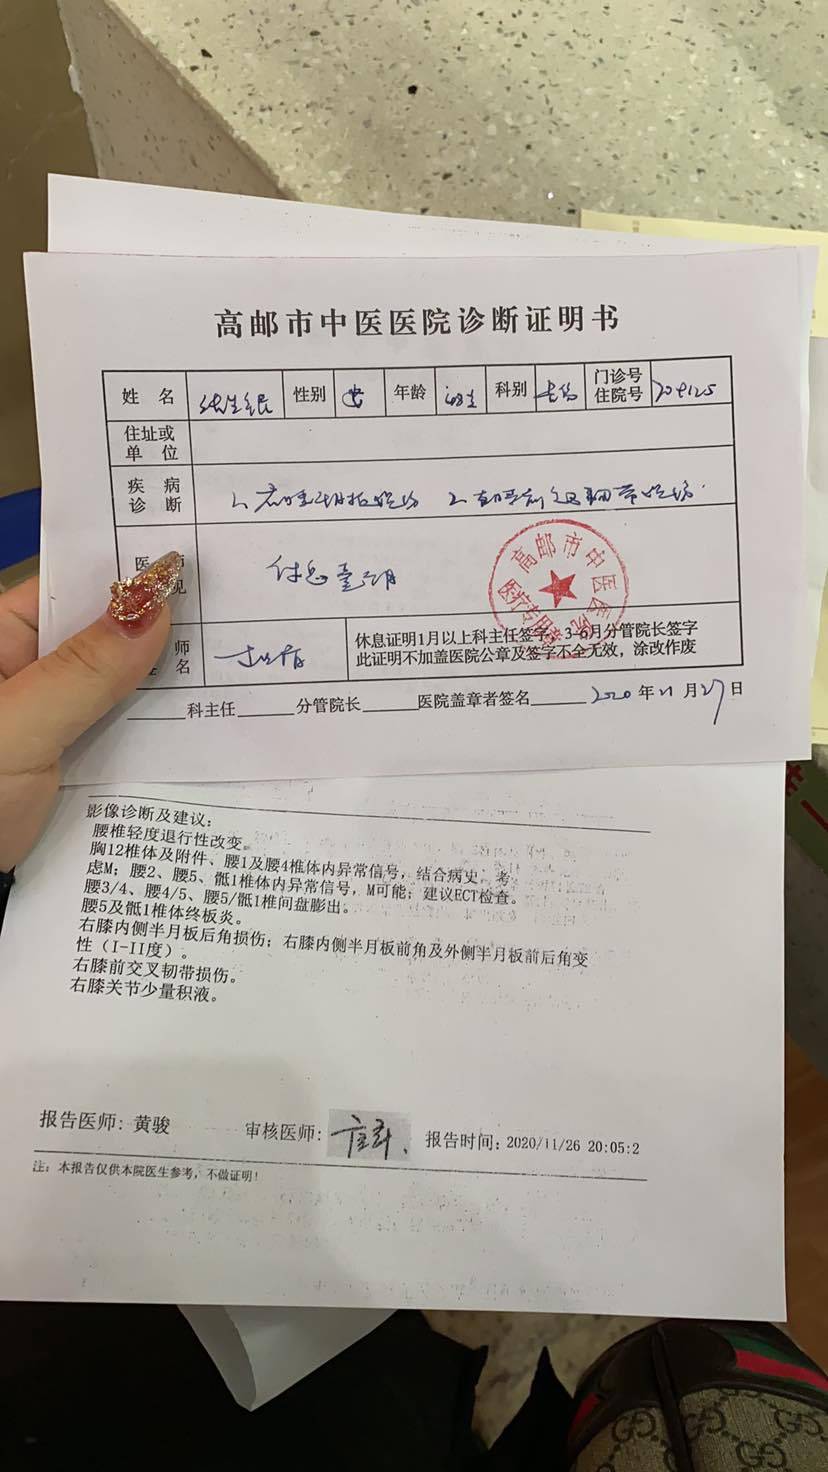 高邮市中医医院诊断证明书
姓 名 性别 年龄 科别 门诊号 住院号 204125
住址或单位
疾病诊断 1、 2、
医
见
休息壹月
师
名
休息证明1月以上科主任签字, 3-6月分管院长签字
此证明不加盖医院公章及签字不全无效, 涂改作废
高邮市中医医院
医疗专用章
科主任 分管院长 医院盖章者签名 2020 年 11 月 27 日
影像诊断及建议:
腰椎轻度退行性改变。
胸12椎体及附件、腰1及腰4椎体内异常信号, 结合病史, 考
虑M; 腰2、腰5、骶1椎体内异常信号, M可能; 建议ECT检查。
腰3/4、腰4/5、腰5/骶1椎间盘膨出。
腰5及骶1椎体终板炎。
右膝内侧半月板后角损伤; 右膝内侧半月板前角及外侧半月板前后角变
性 (I-II度) 。
右膝前交叉韧带损伤。
右膝关节少量积液。
报告医师: 黄骏 审核医师: 报告时间: 2020/11/26 20:05:2
注: 本报告仅供本院医生参考, 不做证明!